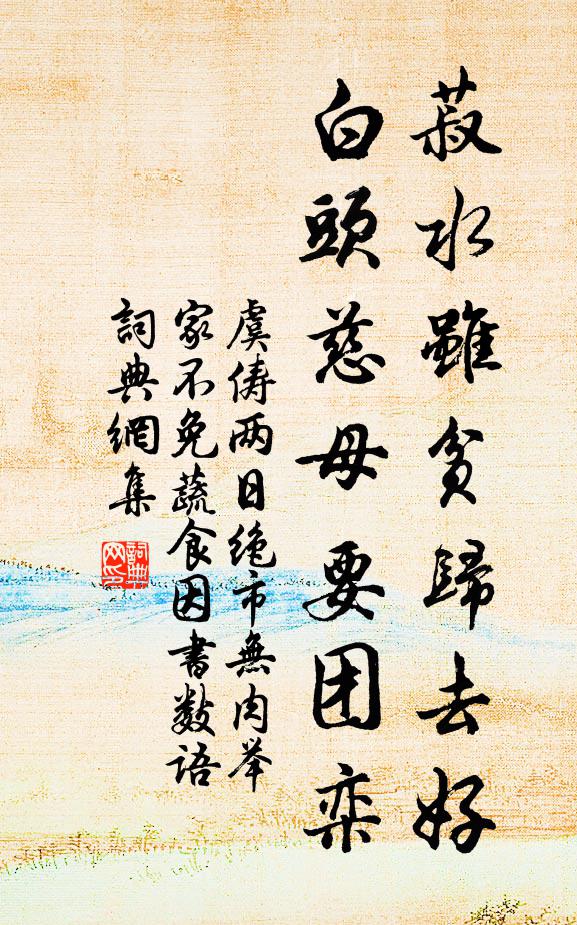 菽水雖貧歸去好
白頭慈母要团栾
虞俦两日绝市無肉举
家不免蔬食因書数语
詞典網集
詞典
网印